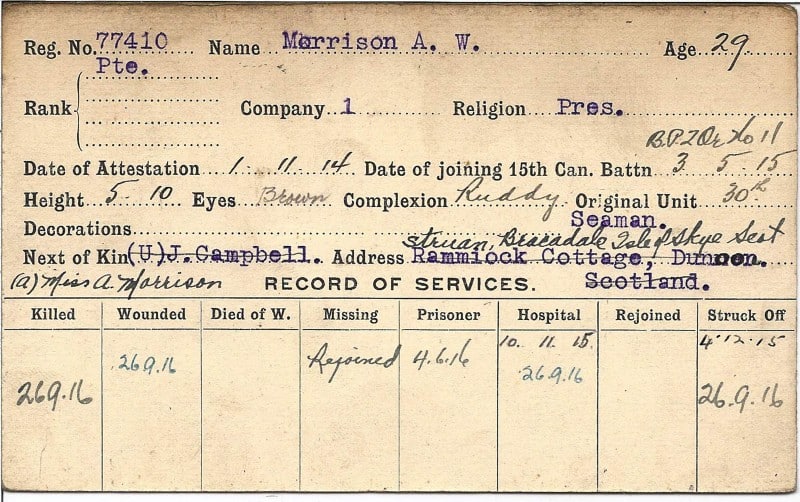 Reg. No. 77410 Name Morrison A. W. Age 29
Pte.
Rank Company 1 Religion Pres.
B.P.2 Or No 11
Date of Attestation 1 · 11 · 14 Date of joining 15th Can. Battn 3 5 · 15
Height 5 · 10 Eyes Brown Complexion Ruddy Original Unit 30th
Decorations Seaman.
Struan, Bracadale Isle of Skye Scot
Next of Kin (U) J. Campbell. Address Rammiock Cottage, Dunoon.
(a) Miss A. Morrison RECORD OF SERVICES. Scotland.
Killed Wounded Died of W. Missing Prisoner Hospital Rejoined Struck Off
10. 11. 15. 4·12·15
26.9.16 Rejoined 4.6.16 26.9.16
26.9.16 26.9.16